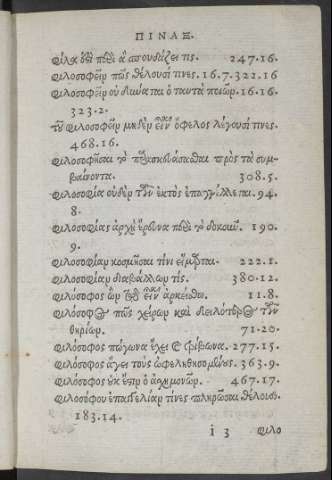 ΠΙΝΑΞ.
Φίλα ὅτι πᾶσι ἃ σπουδάζει τις. 247.16.
Φιλοσοφεῖν πῶς θέλουσί τινες. 16.7.322.16
Φιλοσοφεῖν οὐ δύναται ὁ ταυτὰ ποιῶν. 16.16.
323.2.
Τοῦ φιλοσοφεῖν μηδὲν εἶναι ὄφελος λέγουσί τινες.
468.16.
Φιλοσοφῆσαι τὸ παρασκευάσασθαι πρὸς τὰ συμ-
βαίνοντα. 308.5.
Φιλοσοφία οὐδὲν τῶν ἐκτὸς ἐπαγγέλλεται. 94.
8.
Φιλοσοφίας ἀρχὴ ἔρευνα περὶ τὸ δοκοῦν. 190.
9.
Φιλοσοφίαν κοσμῆσαι τίνι εἵμαρται. 222.1.
Φιλοσοφίαν διαβάλλων τίς. 380.12.
Φιλόσοφος ὢν τοῦ εἶναι ἀρκείσθω. 11.8.
Φιλόσοφος πῶς χείρων καὶ δειλότερος τῶν
θηρίων. 71.20.
Φιλόσοφος πώγωνα ἔχει καὶ τρίβωνα. 277.15.
Φιλόσοφος ἄγει τοὺς ὠφεληθησομένους. 363.9.
Φιλόσοφος οὐκ ἔστιν ὁ ἀσχημονῶν. 467.17.
Φιλοσόφου ἐπαγγελίαν τίνες πληρῶσαι θέλουσι.
183.14.
i 3 Φιλο